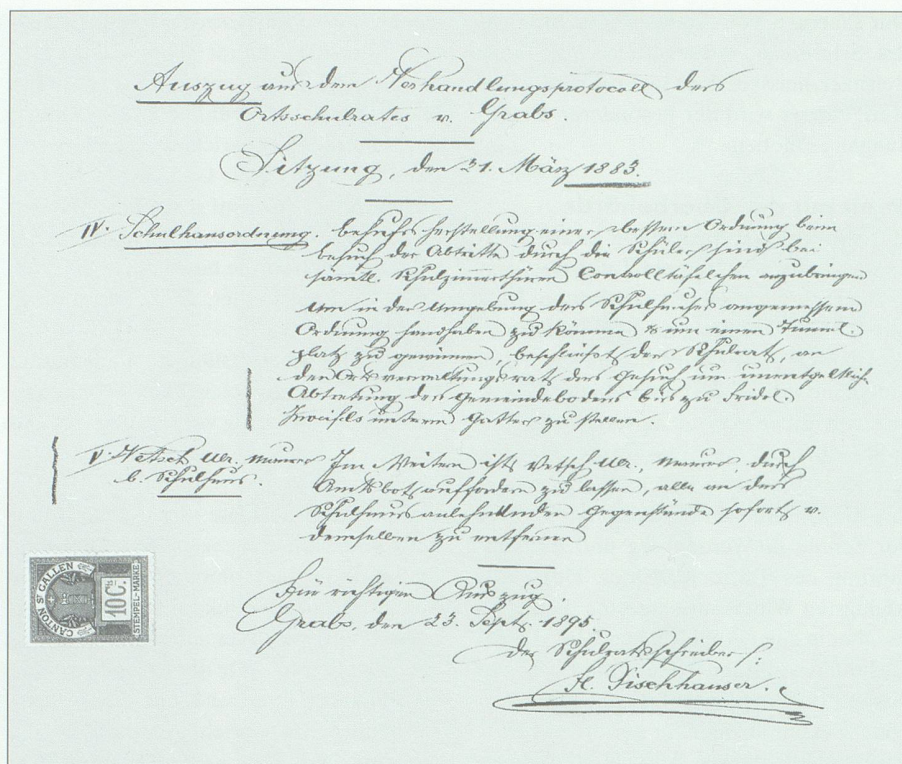 Auszug aus dem Verhandlungsprotocoll des
Ortsschulrates v. Grabs.
Sitzung, den 21. März 1883.
IV. Schulhausordnung. Behufs Herstellung einer bessern Ordnung beim
Besuch der Abtritte durch die Schüler sind bei
sämtl. Schulzimmerthüren Controlltäfelchen anzubringen
Um in der Umgebung des Schulhauses angemessene
Ordnung handhaben zu können & um einen Tummel
platz zu gewinnen, beschließt der Schulrat, an
den Ortsverwaltungsrat das Gesuch um unentgeltliche
Abtretung des Gemeindebodens bis zu Fridol.
unterm Gatter zu stellen.
V. Vetsch Ulr. Maurer Im Weitern ist Vetsch Ulr., Maurer, durch
b. Schulhaus. Amtsbot auffordern zu lassen, alle an das
Schulhaus anlehnenden Gegenstände sofort v.
demselben zu entfernen
Für richtigen Auszug.
Grabs, den 23. Sept. 1895.
Der Schulratsschreiber:
H. Tischhauser.
CANTON ST GALLEN
10 Cts
STEMPEL-MARKE